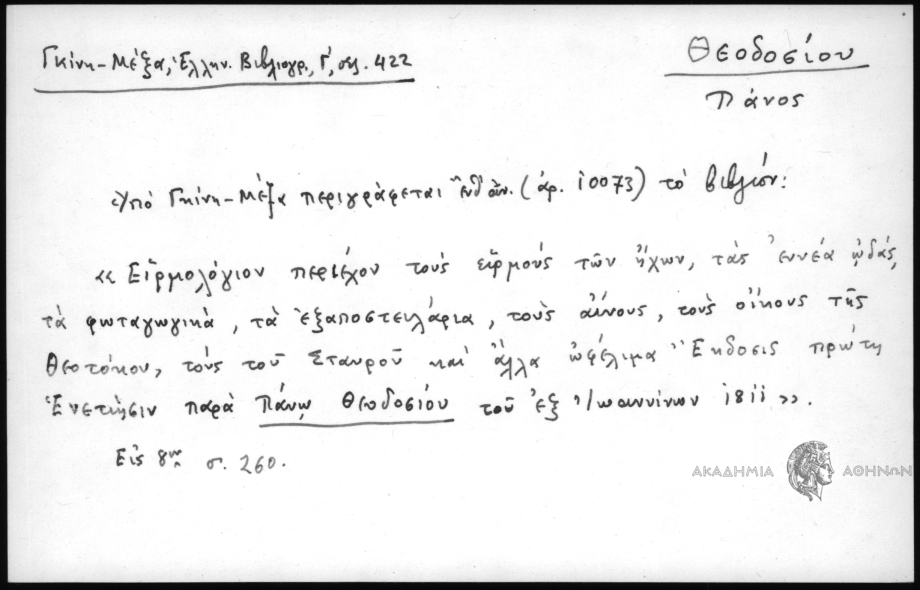 Γκίνη-Μέξα, Ἑλλην. Βιβλιογρ., Γ', σελ. 422
Θεοδοσίου
Πάνος
Ὑπό Γκίνη-Μέξα περιγράφεται (ἀρ. 10073) τό βιβλίον:
« Εἱρμολόγιον περιέχον τούς εἱρμούς τῶν ἤχων, τάς ἐννέα ᾠδάς,
τά φωταγωγικά, τά ἐξαποστειλάρια, τούς αἴνους, τούς οἴκους τῆς
Θεοτόκου, τούς τοῦ Σταυροῦ καί ἄλλα ὠφέλιμα Ἔκδοσις πρώτη
Ἐνετίησιν παρά Πάνῳ Θεοδοσίου τοῦ ἐξ Ἰωαννίνων 1811 ».
Εἰς 8ον σ. 260.
ΑΚΑΔΗΜΙΑ ΑΘΗΝΩΝ